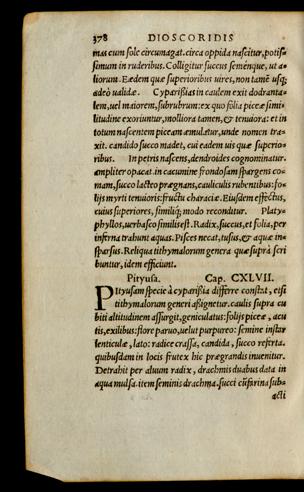 378 DIOSCORIDIS
mas cum sole circumagat. circa oppida nascitur, potis-
simum in ruderibus. Colligitur succus semenque, ut a-
liorum. Eædem quæ superioribus uires, non tamẽ usq;
adeò ualidæ. Cyparißias in caulem exit dodranta-
lem, uel maiorem, subrubrum: ex quo folia piceæ simi-
litudine exoriuntur, molliora tamen, & tenuiora: et in
totum nascentem piceam æmulatur, unde nomen tra-
xit. candido succo madet, cui eadem uis quæ superio-
ribus. In petris nascens, dendroides cognominatur.
ampliter opacat in cacumine frondosam spargens co-
mam, succo lacteo prægnans, cauliculis rubentibus: fo-
lijs myrti tenuioris: fructu characiæ. Eiusdem effectus,
cuius superiores, similiq; modo reconditur. Platy-
phyllos, uerbasco similis est. Radix, succus, et folia, per
inferna trahunt aquas. Pisces necat, tusus, & aquæ in-
sparsus. Reliqua tithymalorum genera quæ suprà scri
buntur, idem efficiunt.
Pityusa. Cap. CXLVII.
Pityusam specie à cyparißia differre constat, etsi
tithymalorum generi aßignetur. caulis supra cu
biti altitudinem assurgit, geniculatus: folijs piceæ, acu
tis, exilibus: flore paruo, uelut purpureo: semine instar
lenticulæ, lato: radice crassa, candida, succo referta.
quibusdam in locis frutex hic prægrandis inuenitur.
Detrahit per aluum radix, drachmis duabus data in
aqua mulsa. item seminis drachma. succi cũ farina sub-
acti